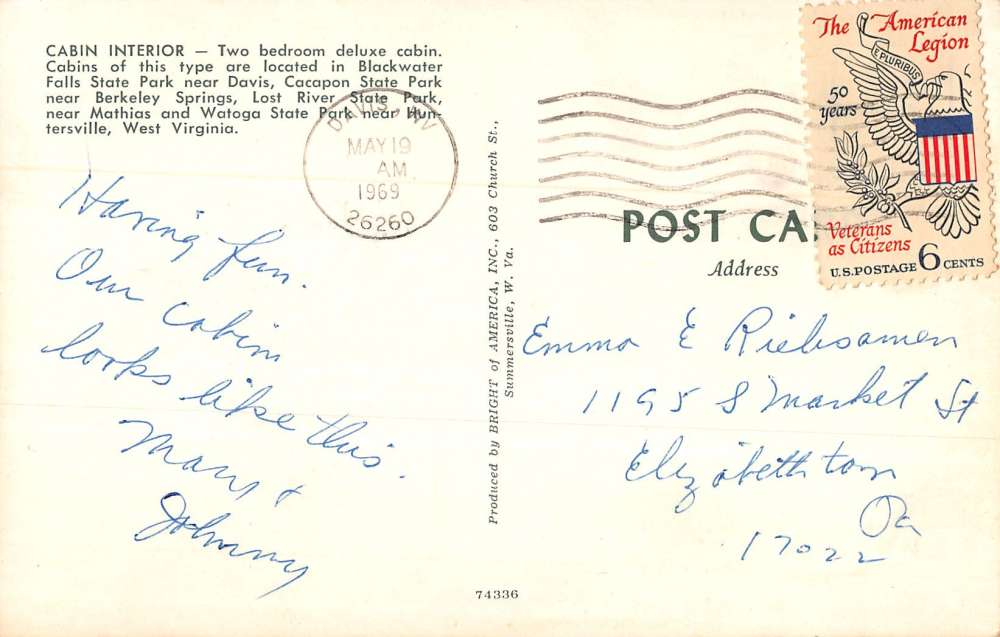 CABIN INTERIOR — Two bedroom deluxe cabin.
Cabins of this type are located in Blackwater
Falls State Park near Davis, Cacapon State Park
near Berkeley Springs, Lost River State Park,
near Mathias and Watoga State Park near Hun-
tersville, West Virginia.
DAVIS, WV
MAY 19
AM
1969
26260
Having fun.
Our cabin
looks like this.
Mary &
Johnny
Produced by BRIGHT of AMERICA, INC., 603 Church St.,
Summersville, W. Va.
74336
The American
Legion
E PLURIBUS
50
years
Veterans
as Citizens
U.S. POSTAGE 6 CENTS
POST CA
Address
Emma E Riebsamen
1195 S Market St
Elizabethtown
Pa
17022